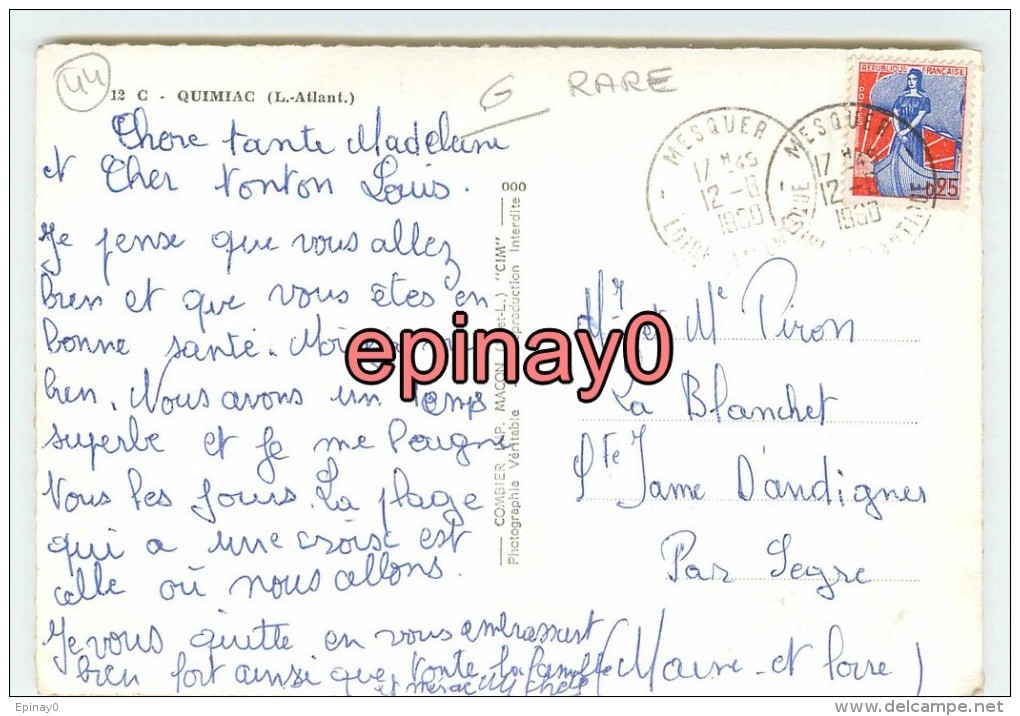 44
12 C - QUIMIAC (L.-Atlant.)
G RARE
REPUBLIQUE FRANÇAISE
POSTES
0,25
MESQUER
17 H 45
12 - 8
1960
LOIRE ATLANTIQUE
MESQUER
17 H
12 -
1960
Chere tante Madeleine
et Cher tonton Louis.
Je pense que vous allez
bien et que vous êtes en
bonne santé. Moi
bien. Nous avons un temps
superbe et je me baigne
tous les jours. La plage
qui a une croix est
celle où nous allons.
Je vous quitte en vous embrassent
bien fort ainsi que toute la famille
000
COMBIER IMP. MACON "CIM"
Photographie Véritable - Reproduction Interdite
epinay0
Mr et Me Piron
La Blanchet
Ste Jame D'andignes
Par Segre
(Maine-et-loire)
Epinay0
www.delcampe.net